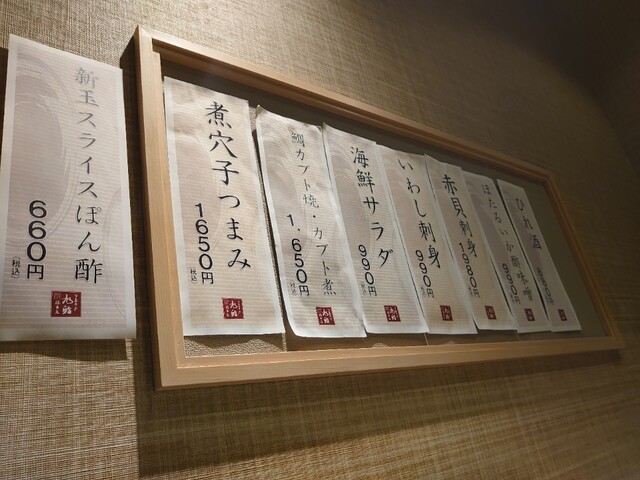 新玉スライスぽん酢
660円
(税込)
煮穴子つまみ
1650円
(税込)
鯛カブト焼・カブト煮
1,650円
(税込)
海鮮サラダ
990円
(税込)
いわし刺身
990円
(税込)
赤貝刺身
1980円
(税込)
ほたるいか酢味噌
990円
ひれ酒